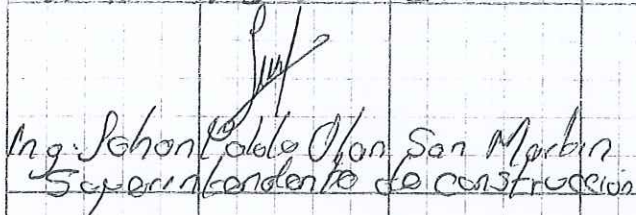 Ing. Johan Pablo Olan San Martin
Superintendente de construccion